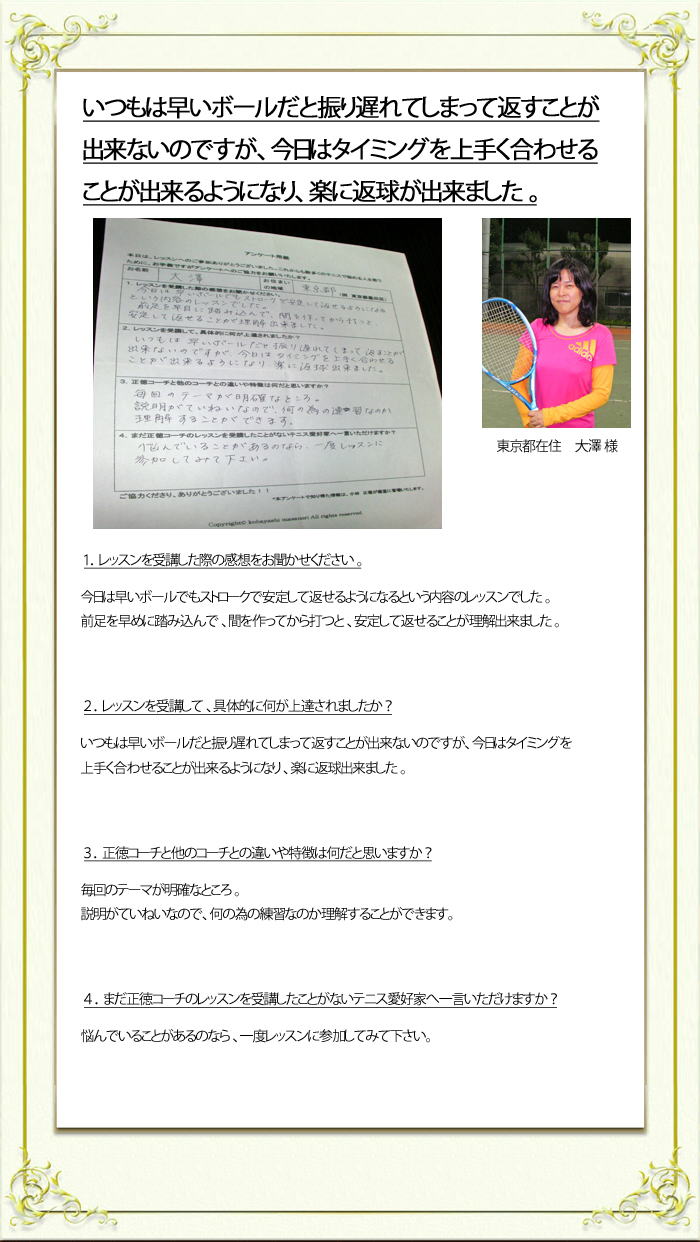 いつもは早いボールだと振り遅れてしまって返すことが
出来ないのですが、今日はタイミングを上手く合わせる
ことが出来るようになり、楽に返球が出来ました。
アンケート用紙
本日は、レッスンへのご参加ありがとうございました。これからも数多くのテニスで悩める人を救う
ために、お手数ですがアンケートへのご協力をお願いいたします。
お名前 大澤 お住まいの地域 東京都
1. レッスンを受講した際の感想をお聞かせください。
今日は早いボールでもストロークで安定して返せるようになる
という内容のレッスンでした。
前足を早目に踏み込んで、間を作ってから打つと、
安定して返せることが理解出来ました。
2. レッスンを受講して、具体的に何が上達されましたか？
いつもは早いボールだと振り遅れてしまって返すことが
出来ないのですが、今日はタイミングを上手く合わせる
ことが出来るようになり、楽に返球出来ました。
3. 正徳コーチと他のコーチとの違いや特徴は何だと思いますか？
毎回のテーマが明確なところ。
説明がていねいなので、何の為の練習なのか
理解することができます。
4. まだ正徳コーチのレッスンを受講したことがないテニス愛好家へ一言いただけますか？
悩んでいることがあるのなら、一度レッスンに
参加してみて下さい。
ご協力くださり、ありがとうございました！！
Copyright© kobayashi masanori All rights reserved.
adidas
東京都在住　大澤 様
1. レッスンを受講した際の感想をお聞かせください。
今日は早いボールでもストロークで安定して返せるようになるという内容のレッスンでした。
前足を早めに踏み込んで、間を作ってから打つと、安定して返せることが理解出来ました。
２. レッスンを受講して、具体的に何が上達されましたか？
いつもは早いボールだと振り遅れてしまって返すことが出来ないのですが、今日はタイミングを
上手く合わせることが出来るようになり、楽に返球出来ました。
３. 正徳コーチと他のコーチとの違いや特徴は何だと思いますか？
毎回のテーマが明確なところ。
説明がていねいなので、何の為の練習なのか理解することができます。
４. まだ正徳コーチのレッスンを受講したことがないテニス愛好家へ一言いただけますか？
悩んでいることがあるのなら、一度レッスンに参加してみて下さい。